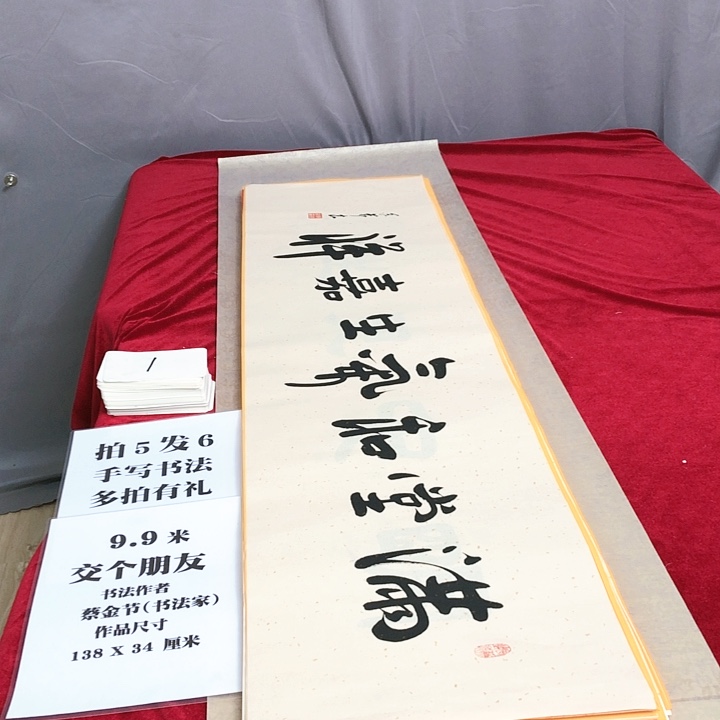 滿堂和氣生嘉祥
1
拍 5 发 6
手写书法
多拍有礼
9.9 米
交个朋友
书法作者
蔡金节(书法家)
作品尺寸
138 X 34 厘米